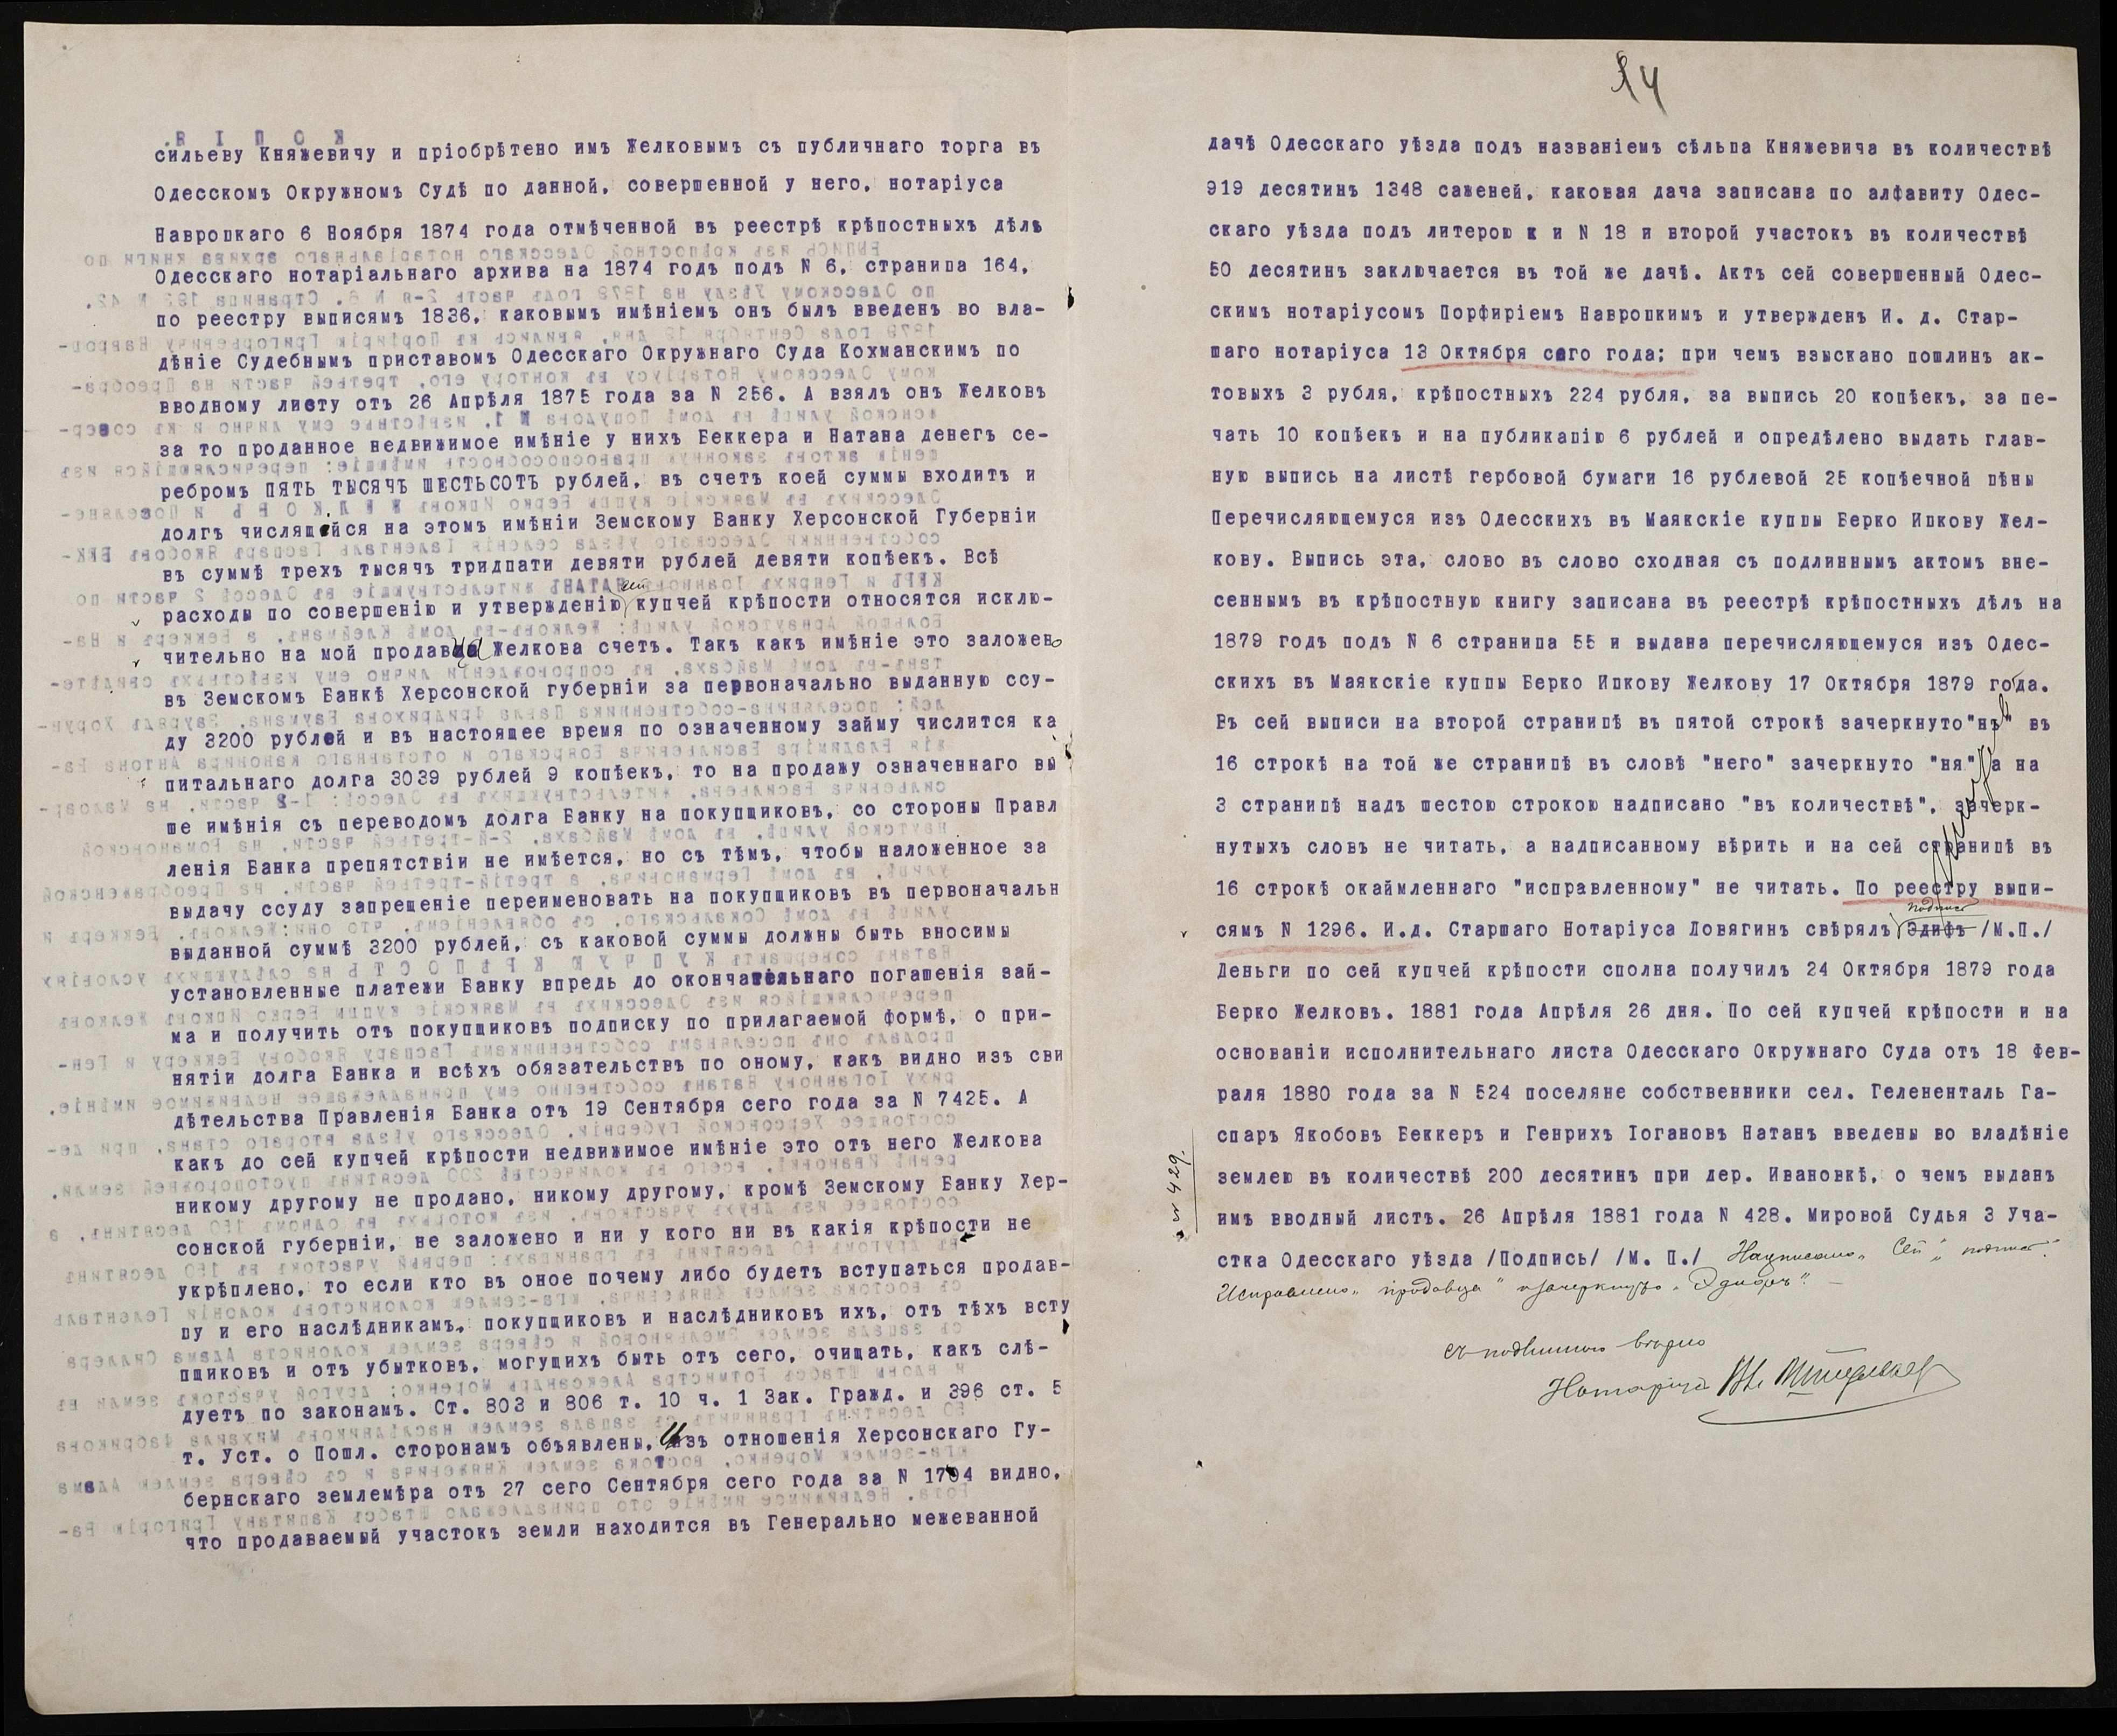 сильеву Княжевичу и пріобрѣтено имъ Желковымъ съ публичнаго торга въ
Одесскомъ Окружномъ Судѣ по данной, совершенной у него, нотаріуса
Навроцкаго 6 Ноября 1874 года отмѣченной въ реестрѣ крѣпостныхъ дѣлъ
Одесскаго нотаріальнаго архива на 1874 годъ подъ N 6, страница 164,
по реестру выписямъ 1836, каковымъ имѣніемъ онъ былъ введенъ во вла-
дѣніе Судебнымъ приставомъ Одесскаго Окружнаго Суда Кохманскимъ по
вводному листу отъ 26 Апрѣля 1875 года за N 256. А взялъ онъ Желковъ
за то проданное недвижимое имѣніе у нихъ Беккера и Натана денегъ се-
ребромъ ПЯТЬ ТЫСЯЧЪ ШЕСТЬСОТЪ рублей, въ счетъ коей суммы входитъ и
долгъ числящейся на этомъ имѣніи Земскому Банку Херсонской Губерніи
въ суммѣ трехъ тысячъ тридцати девяти рублей девяти копѣекъ. Всѣ
расходы по совершенію и утвержденію сей купчей крѣпости относятся исклю-
чительно на мой продавца Желкова счетъ. Такъ какъ имѣніе это заложено
въ Земскомъ Банкѣ Херсонской губерніи за первоначально выданную ссу-
ду 3200 рублей и въ настоящее время по означенному займу числится ка
питальнаго долга 3039 рублей 9 копѣекъ, то на продажу означеннаго вы
ше имѣнія съ переводомъ долга Банку на покупщиковъ, со стороны Правл
ленія Банка препятствіи не имѣется, но съ тѣмъ, чтобы наложенное за
выдачу ссуду запрещеніе переименовать на покупщиковъ въ первоначальн
выданной суммѣ 3200 рублей, съ каковой суммы должны быть вносимы
установленные платежи Банку впредь до окончательнаго погашенія зай-
ма и получить отъ покупщиковъ подписку по прилагаемой формѣ, о при-
нятіи долга Банка и всѣхъ обязательствъ по оному, какъ видно изъ сви
дѣтельства Правленія Банка отъ 19 Сентября сего года за N 7425. А
какъ до сей купчей крѣпости недвижимое имѣніе это отъ него Желкова
никому другому не продано, никому другому, кромѣ Земскому Банку Хер-
сонской губерніи, не заложено и ни у кого ни въ какія крѣпости не
укрѣплено, то если кто въ оное почему либо будетъ вступаться продав-
цу и его наслѣдникамъ, покупщиковъ и наслѣдниковъ ихъ, отъ тѣхъ всту
пщиковъ и отъ убытковъ, могущихъ быть отъ сего, очищать, какъ слѣ-
дуетъ по законамъ. Ст. 803 и 806 т. 10 ч. 1 Зак. Гражд. и 396 ст. 5
т. Уст. о Пошл. сторонамъ объявлены. Изъ отношенія Херсонскаго Гу-
бернскаго землемѣра отъ 27 сего Сентября сего года за N 1704 видно,
что продаваемый участокъ земли находится въ Генерально межеванной
14
дачѣ Одесскаго уѣзда подъ названіемъ сѣльца Княжевича въ количествѣ
919 десятинъ 1348 саженей, каковая дача записана по алфавиту Одес-
скаго уѣзда подъ литерою к и N 18 и второй участокъ въ количествѣ
50 десятинъ заключается въ той же дачѣ. Актъ сей совершенный Одес-
скимъ нотаріусомъ Порфиріемъ Навроцкимъ и утвержденъ И. д. Стар-
шаго нотаріуса 13 Октября сего года; при чемъ взыскано пошлинъ ак-
товыхъ 3 рубля, крѣпостныхъ 224 рубля, за выпись 20 копѣекъ, за пе-
чать 10 копѣекъ и на публикацію 6 рублей и опредѣлено выдать глав-
ную выпись на листѣ гербовой бумаги 16 рублевой 25 копѣечной цѣны
Перечисляющемуся изъ Одесскихъ въ Маякскіе купцы Берко Ицкову Жел-
кову. Выпись эта, слово въ слово сходная съ подлиннымъ актомъ вне-
сеннымъ въ крѣпостную книгу записана въ реестрѣ крѣпостныхъ дѣлъ на
1879 годъ подъ N 6 страница 55 и выдана перечисляющемуся изъ Одес-
скихъ въ Маякскіе купцы Берко Ицкову Желкову 17 Октября 1879 года.
Въ сей выписи на второй страницѣ въ пятой строкѣ зачеркнуто "нъ" въ
16 строкѣ на той же страницѣ въ словѣ "него" зачеркнуто "ня" а на
3 страницѣ надъ шестою строкою надписано "въ количествѣ", зачерк-
нутыхъ словъ не читать, а надписанному вѣрить и на сей страницѣ въ
16 строкѣ окаймленнаго "исправленному" не читать. По реестру выпи-
подпись
сямъ N 1296. И.д. Старшаго Нотаріуса Ловягинъ свѣрялъ Эдифъ /М.П./
Деньги по сей купчей крѣпости сполна получилъ 24 Октября 1879 года
Берко Желковъ. 1881 года Апрѣля 26 дня. По сей купчей крѣпости и на
основаніи исполнительнаго листа Одесскаго Окружнаго Суда отъ 18 Фев-
раля 1880 года за N 524 поселяне собственники сел. Гелененталь Га-
спаръ Якобовъ Беккеръ и Генрихъ Іогановъ Натанъ введены во владѣніе
землею въ количествѣ 200 десятинъ при дер. Ивановкѣ, о чемъ выданъ
имъ вводный листъ. 26 Апрѣля 1881 года N 428. Мировой Судья 3 Уча-
стка Одесскаго уѣзда /Подпись/ /М. П./ Надписано "сей" "подпись".
Исправлено "продавца" зачеркнуто "Эдифъ". —
N 429.
Съ подлиннымъ вѣрно
Нотаріусъ